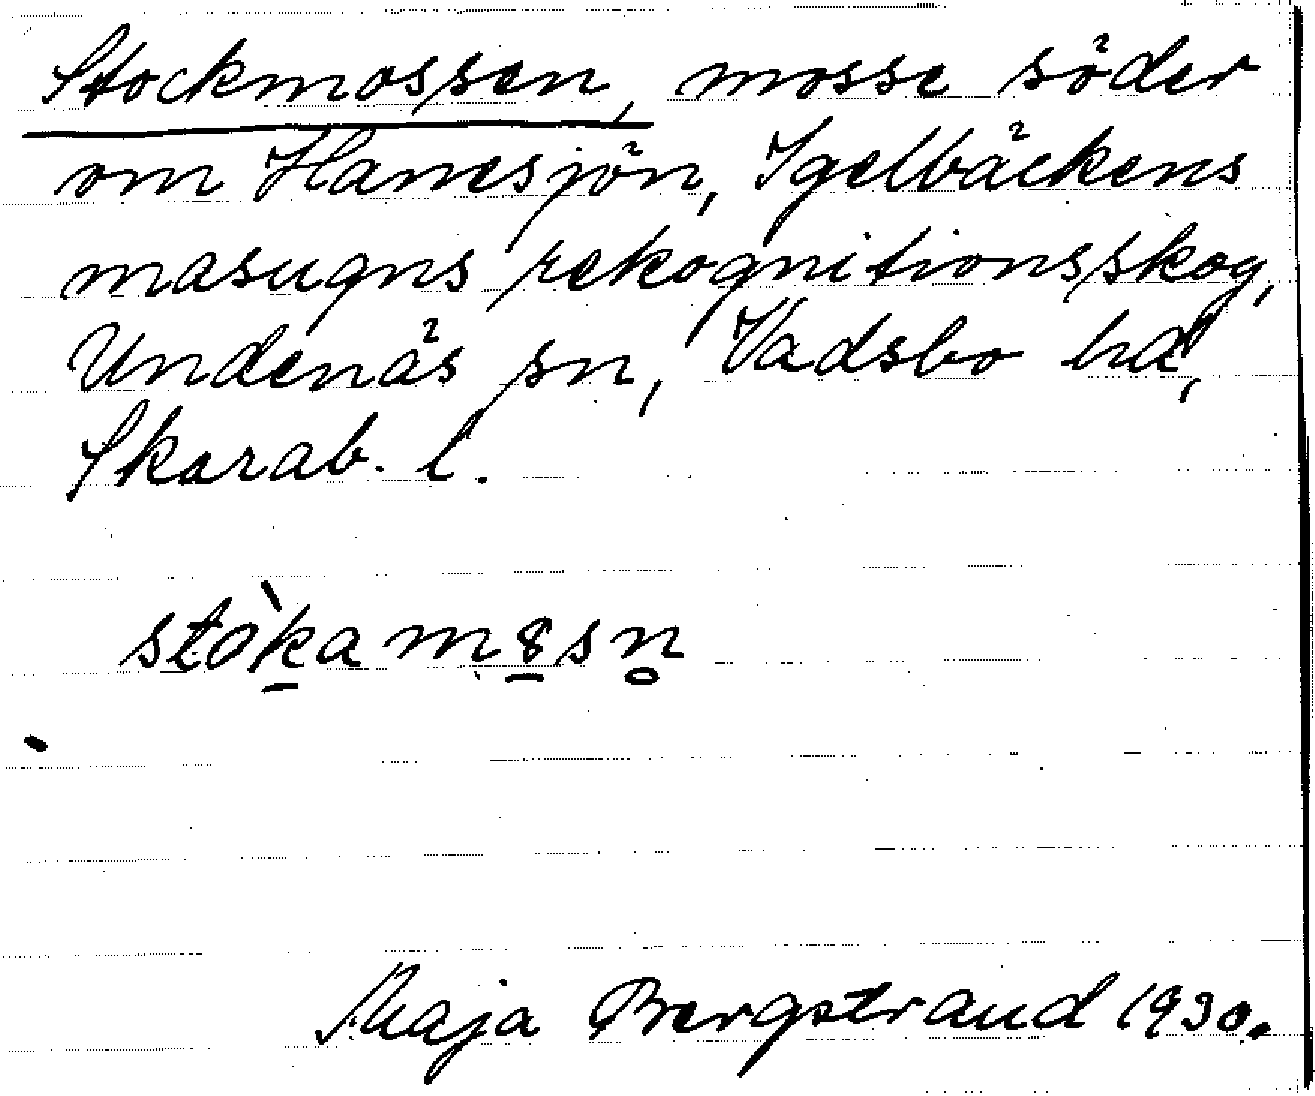 Stockmossen, mosse söder
om Hanesjön, Igelbäckens
masugns rekognitionsskog,
Undenäs sn, Vadsbo hd,
Skarab. l.
stòkamɞsn̥
Maja Bergstrand 1930.